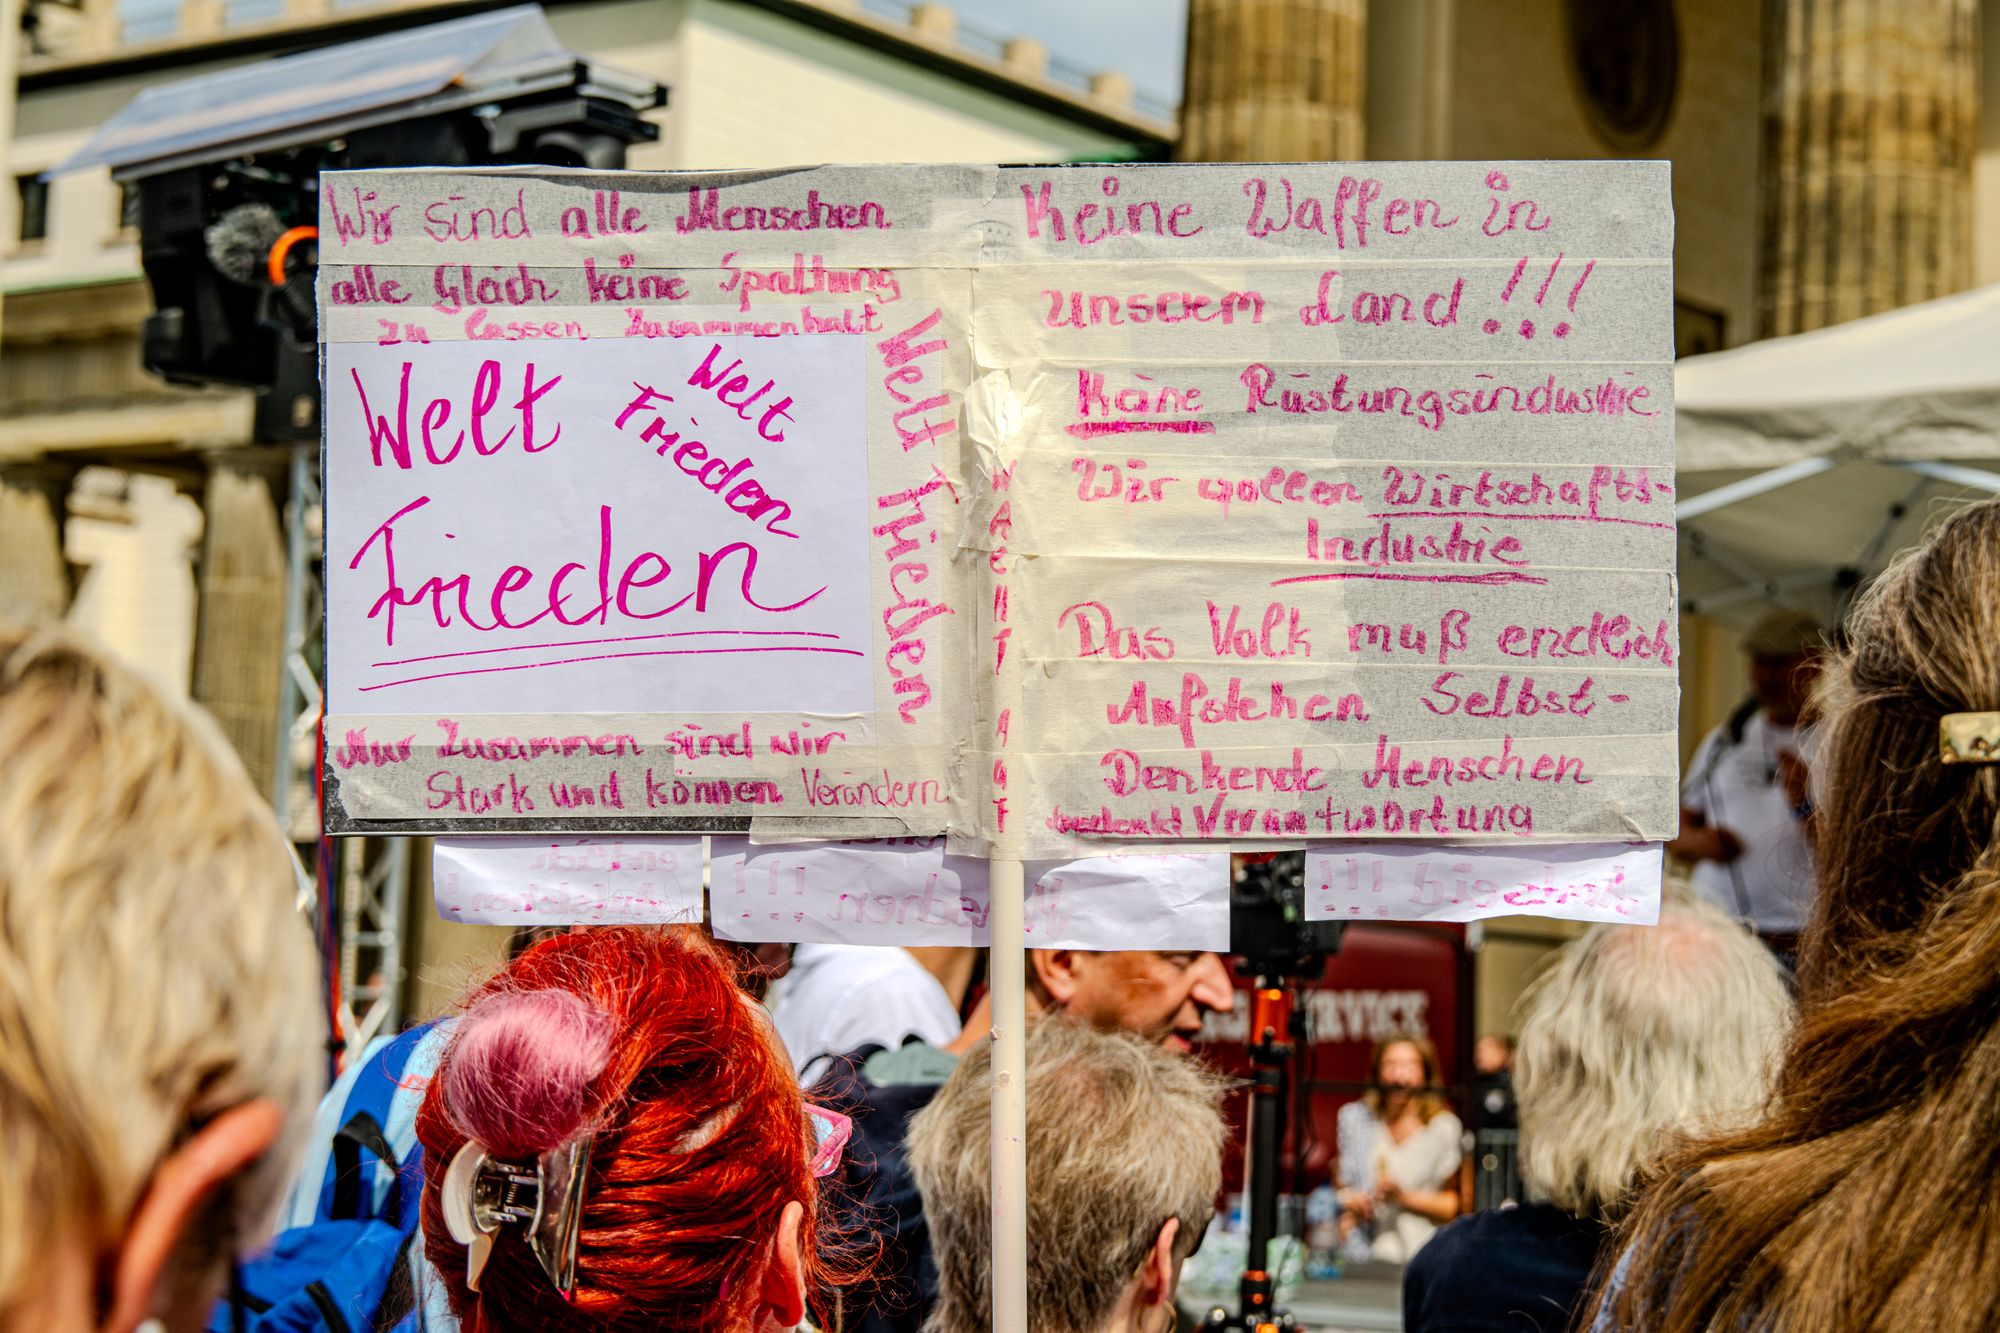 Wir sind alle Menschen
alle Gleich keine Spaltung
zu lassen Zusammenhalt
Welt
Frieden
Welt
Frieden
Welt Frieden
Nur Zusammen sind wir
Stark und können Verändern
WAEHNT AGT
Keine Waffen in
unserem Land!!!
Keine Rüstungsindustrie
Wir wollen Wirtschafts-
Industrie
Das Volk muß endlich
Aufstehen Selbst-
Denkende Menschen
Verantwortung
endlich
Aufstehen !
Menschen !!!
!!!
ERVICE